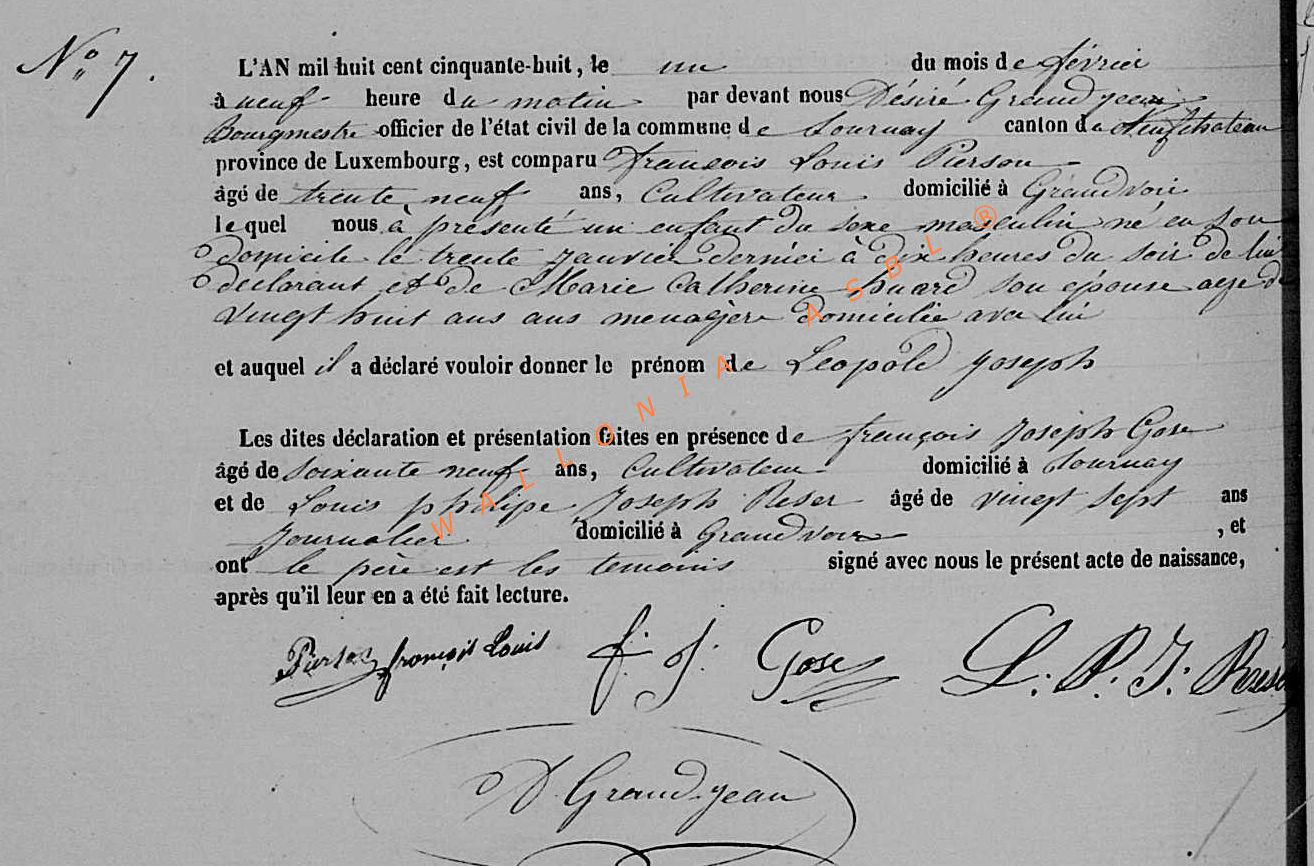 N° 7.
L'AN mil huit cent cinquante-huit, le un du mois de février
à neuf heure du matin par devant nous Désiré Grandjean
Bourgmestre officier de l'état civil de la commune de Tournay canton de Neufchateau
province de Luxembourg, est comparu François Louis Pierson
âgé de trente neuf ans, Cultivateur domicilié à Grandvoir
lequel nous à présenté un enfant du sexe masculin né en son
domicile le trente Janvier dernier à dix heures du soir de lui
déclarant et de Marie Catherine huard son épouse agée de
vingt huit ans ans menagère domicilié avec lui
et auquel il a déclaré vouloir donner le prénom de Leopold Joseph
Les dites déclaration et présentation faites en présence de françois Joseph Gose
âgé de Soixante neuf ans, Cultivateur domicilié à Tournay
et de Louis philipe Joseph Reser âgé de vingt sept ans
Journalier domicilié à Grandvoir, et
ont le père est les temoins signé avec nous le présent acte de naissance,
après qu'il leur en a été fait lecture.
Pierson françois Louis f. J. Gose L. P. J. 
D Grandjean
WALLONIA ASBL ®